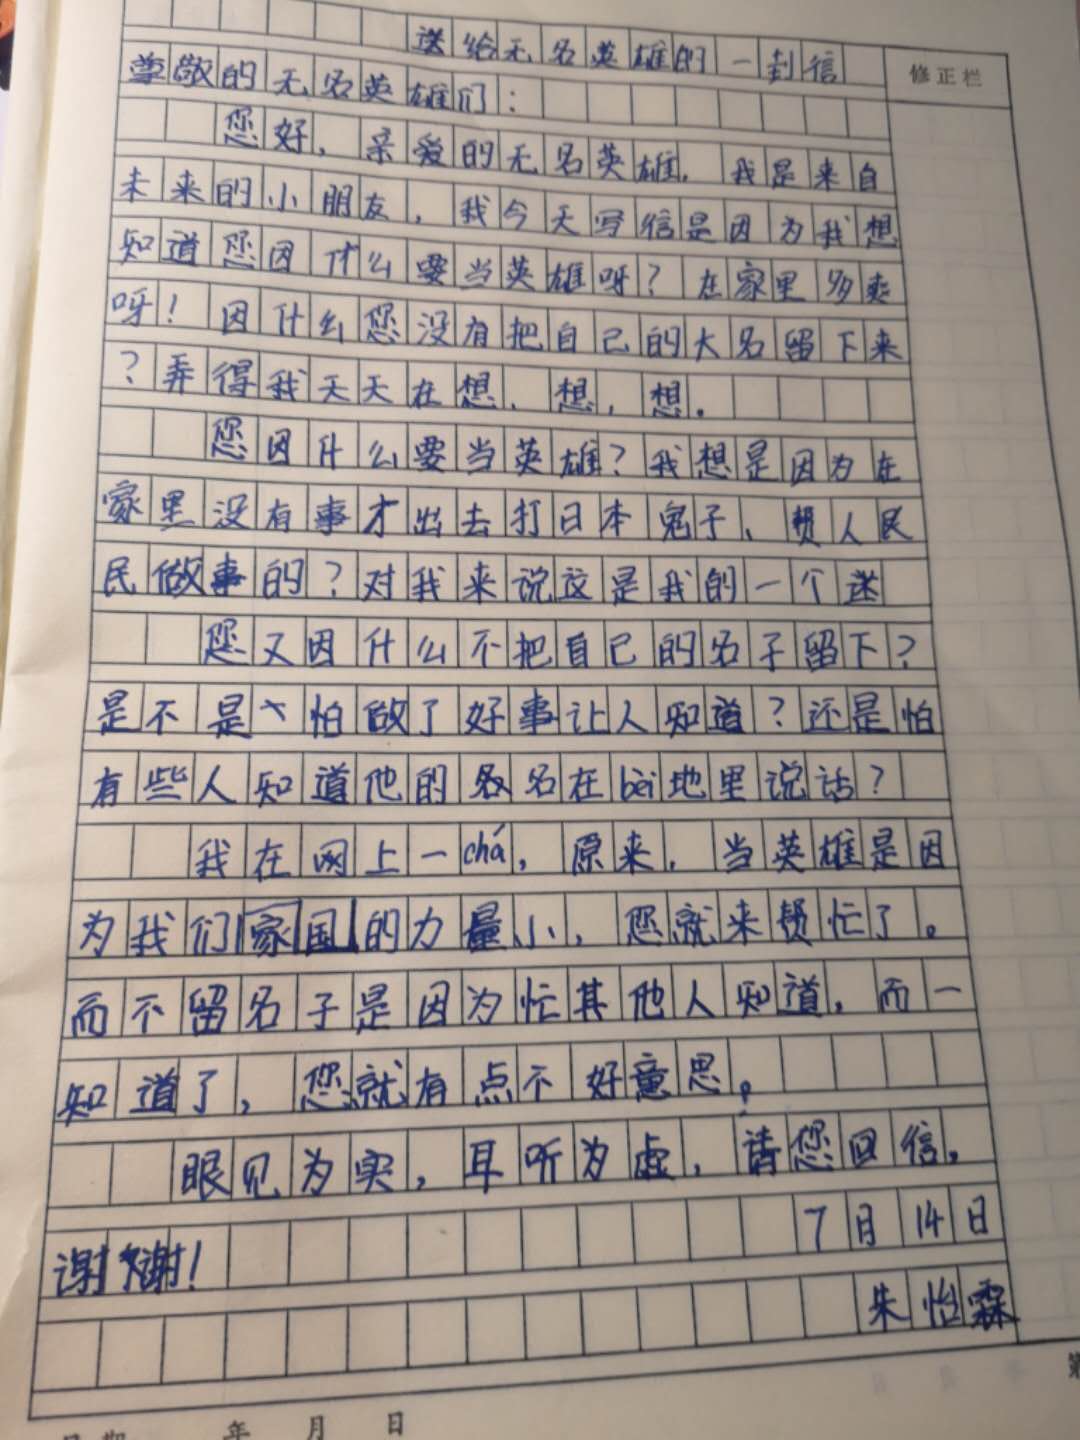 送给无名英雄的一封信
修正栏
尊敬的无名英雄们：
您好，亲爱的无名英雄，我是来自
未来的小朋友，我今天写信是因为我想
知道您因什么要当英雄呀？在家里多爽
呀！因什么您没有把自己的大名留下来
？弄得我天天在想，想，想。
您因什么要当英雄？我想是因为在
家里没有事才出去打日本鬼子、帮人民
民做事的？对我来说这是我的一个迷
您又因什么不把自己的名子留下？
是不是怕做了好事让人知道？还是怕
有些人知道他的名在bèi地里说话？
我在网上一chá，原来，当英雄是因
为我们家国的力量小，您就来帮忙了。
而不留名子是因为忙其他人知道，而一
知道了，您就有点不好意思。
眼见为实，耳听为虚，请您回信，
谢谢！
7月14日
朱怡霖
年 月 日